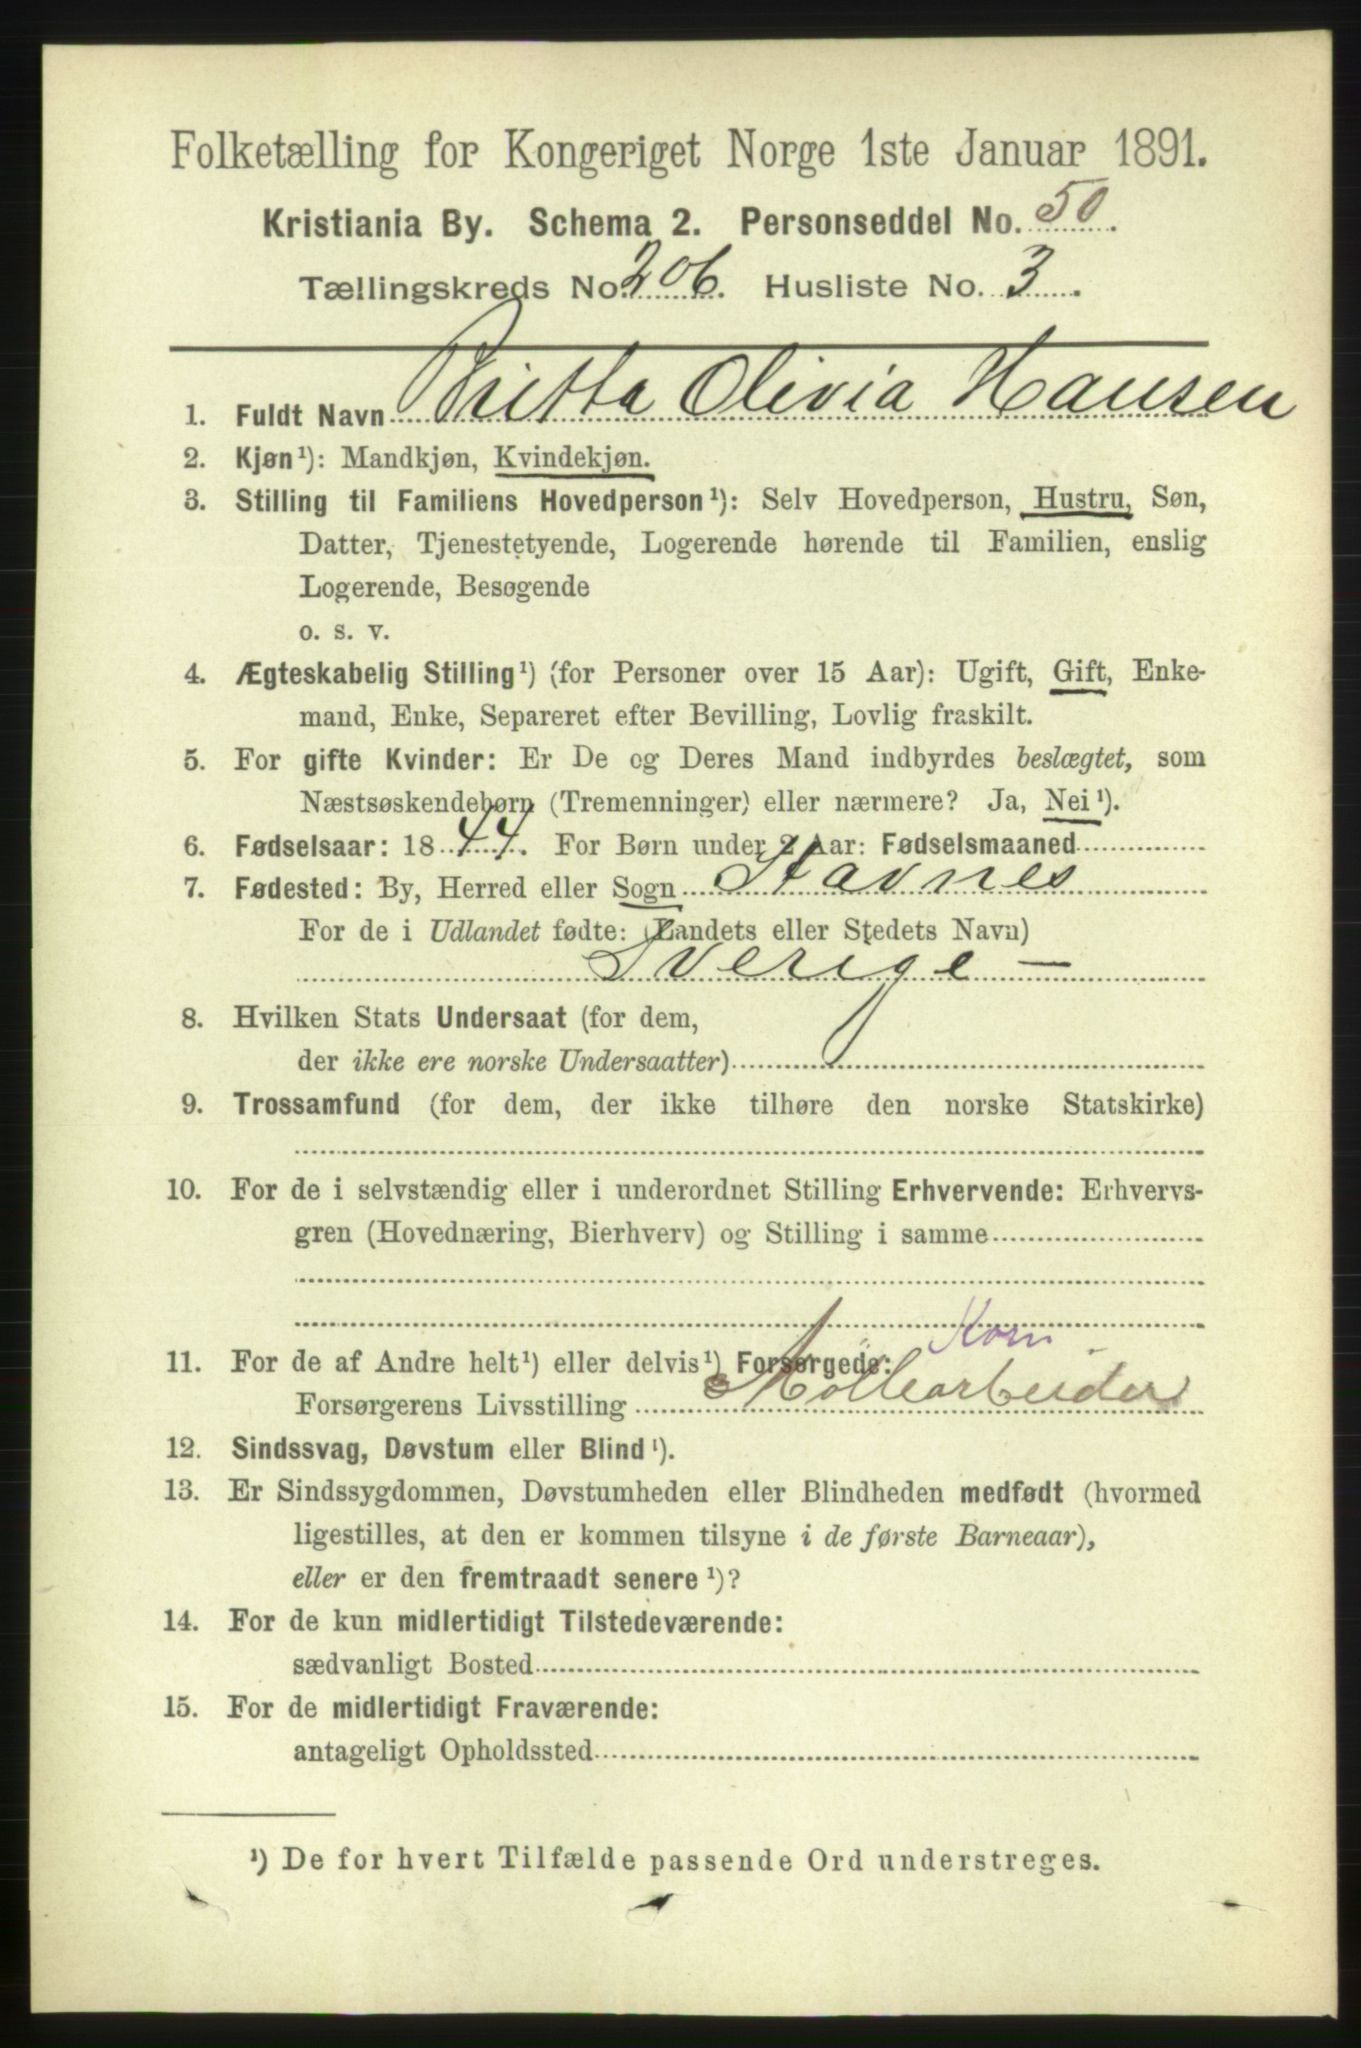 Folketælling for Kongeriget Norge 1ste Januar 1891.
Kristiania By. Schema 2. Personseddel No. 50.
Tællingskreds No. 206. Husliste No. 3.
1. Fuldt Navn Britta Olivia Hansen
2. Kjøn¹): Mandkjøn, Kvindekjøn.
3. Stilling til Familiens Hovedperson¹): Selv Hovedperson, Hustru, Søn,
Datter, Tjenestetyende, Logerende hørende til Familien, enslig
Logerende, Besøgende
o. s. v.
4. Ægteskabelig Stilling¹) (for Personer over 15 Aar): Ugift, Gift, Enke-
mand, Enke, Separeret efter Bevilling, Lovlig fraskilt.
5. For gifte Kvinder: Er De og Deres Mand indbyrdes beslægtet, som
Næstsøskendebørn (Tremenninger) eller nærmere? Ja, Nei¹).
6. Fødselsaar: 1844. For Børn under 2 Aar: Fødselsmaaned
7. Fødested: By, Herred eller Sogn Stavnes
For de i Udlandet fødte: (Landets eller Stedets Navn)
Sverige —
8. Hvilken Stats Undersaat (for dem,
der ikke ere norske Undersaatter)
9. Trossamfund (for dem, der ikke tilhøre den norske Statskirke)
10. For de i selvstændig eller i underordnet Stilling Erhvervende: Erhvervs-
gren (Hovednæring, Bierhverv) og Stilling i samme
Korn
11. For de af Andre helt¹) eller delvis¹) Forsørgede:
Forsørgerens Livsstilling Möllearbeider
12. Sindssvag, Døvstum eller Blind¹).
13. Er Sindssygdommen, Døvstumheden eller Blindheden medfødt (hvormed
ligestilles, at den er kommen tilsyne i de første Barneaar),
eller er den fremtraadt senere¹)?
14. For de kun midlertidigt Tilstedeværende:
sædvanligt Bosted
15. For de midlertidigt Fraværende:
antageligt Opholdssted
¹) De for hvert Tilfælde passende Ord understreges.